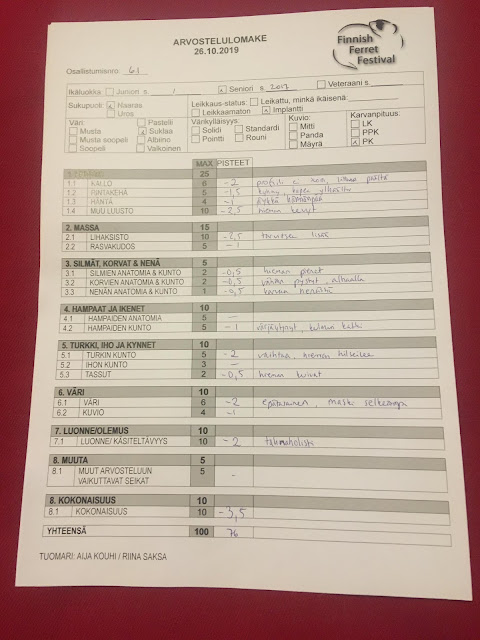 ARVOSTELULOMAKE
26.10.2019
Finnish
Ferret
Festival
Osallistumisnro: 61
Ikäluokka Juniori s. / Seniori s. 2017 Veteraani s.
Sukupuoli: Naaras Leikkaus-status: Leikattu, minkä ikäisenä:
Uros Leikkaamaton Implantti
Väri: Pastelli Värikylläisyys: Kuvio: Karvanpituus:
Musta Suklaa Solidi Standardi Mitti LK
Musta soopeli Albiino Pointti Rouni Panda PPK
Soopeli Valkoinen Mäyrä PK
MAX PISTEET
25
1.1 KALLO 6 -2 profiili ei
1.2 RINTAKEHÄ 5 -1,5
1.3 HÄNTÄ 4 -1
1.4 MUU LUUSTO 10 -2,5 hieman kevyt
2. MASSA 15
2.1 LIHAKSISTO 10 -2,5 lisää
2.2 RASVAKUDOS 5 -1
3. SILMÄT, KORVAT & NENÄ 5
3.1 SILMIEN ANATOMIA & KUNTO 2 -0,5 hieman pienet
3.2 KORVIEN ANATOMIA & KUNTO 2 -0,5 vähän pystyt, alhaalla
3.3 NENÄN ANATOMIA & KUNTO 1 -0,5 karvaa nenällä
4. HAMPAAT JA IKENET 10
4.1 HAMPAIDEN ANATOMIA 5 -
4.2 HAMPAIDEN KUNTO 5 -1 värjäytynyt, kulman
5. TURKKI, IHO JA KYNNET 10
5.1 TURKIN KUNTO 5 -2 vaihtaa, hieman hilseilee
5.2 IHON KUNTO 3 -
5.3 TASSUT 2 -0,5 hieman kuivat
6. VÄRI 10
6.1 VÄRI 6 -2 epätasainen, maski selkeämpi
6.2 KUVIO 4 -1
7. LUONNE/OLEMUS 10
7.1 LUONNE/ KÄSITELTÄVYYS 10 -2
8. MUUTA 5
8.1 MUUT ARVOSTELUUN 5 -
VAIKUTTAVAT SEIKAT
8. KOKONAISUUS 10
8.1 KOKONAISUUS 10 -3,5
YHTEENSÄ 100 76
TUOMARI: AIJA KOUHI / RIINA SAKSA